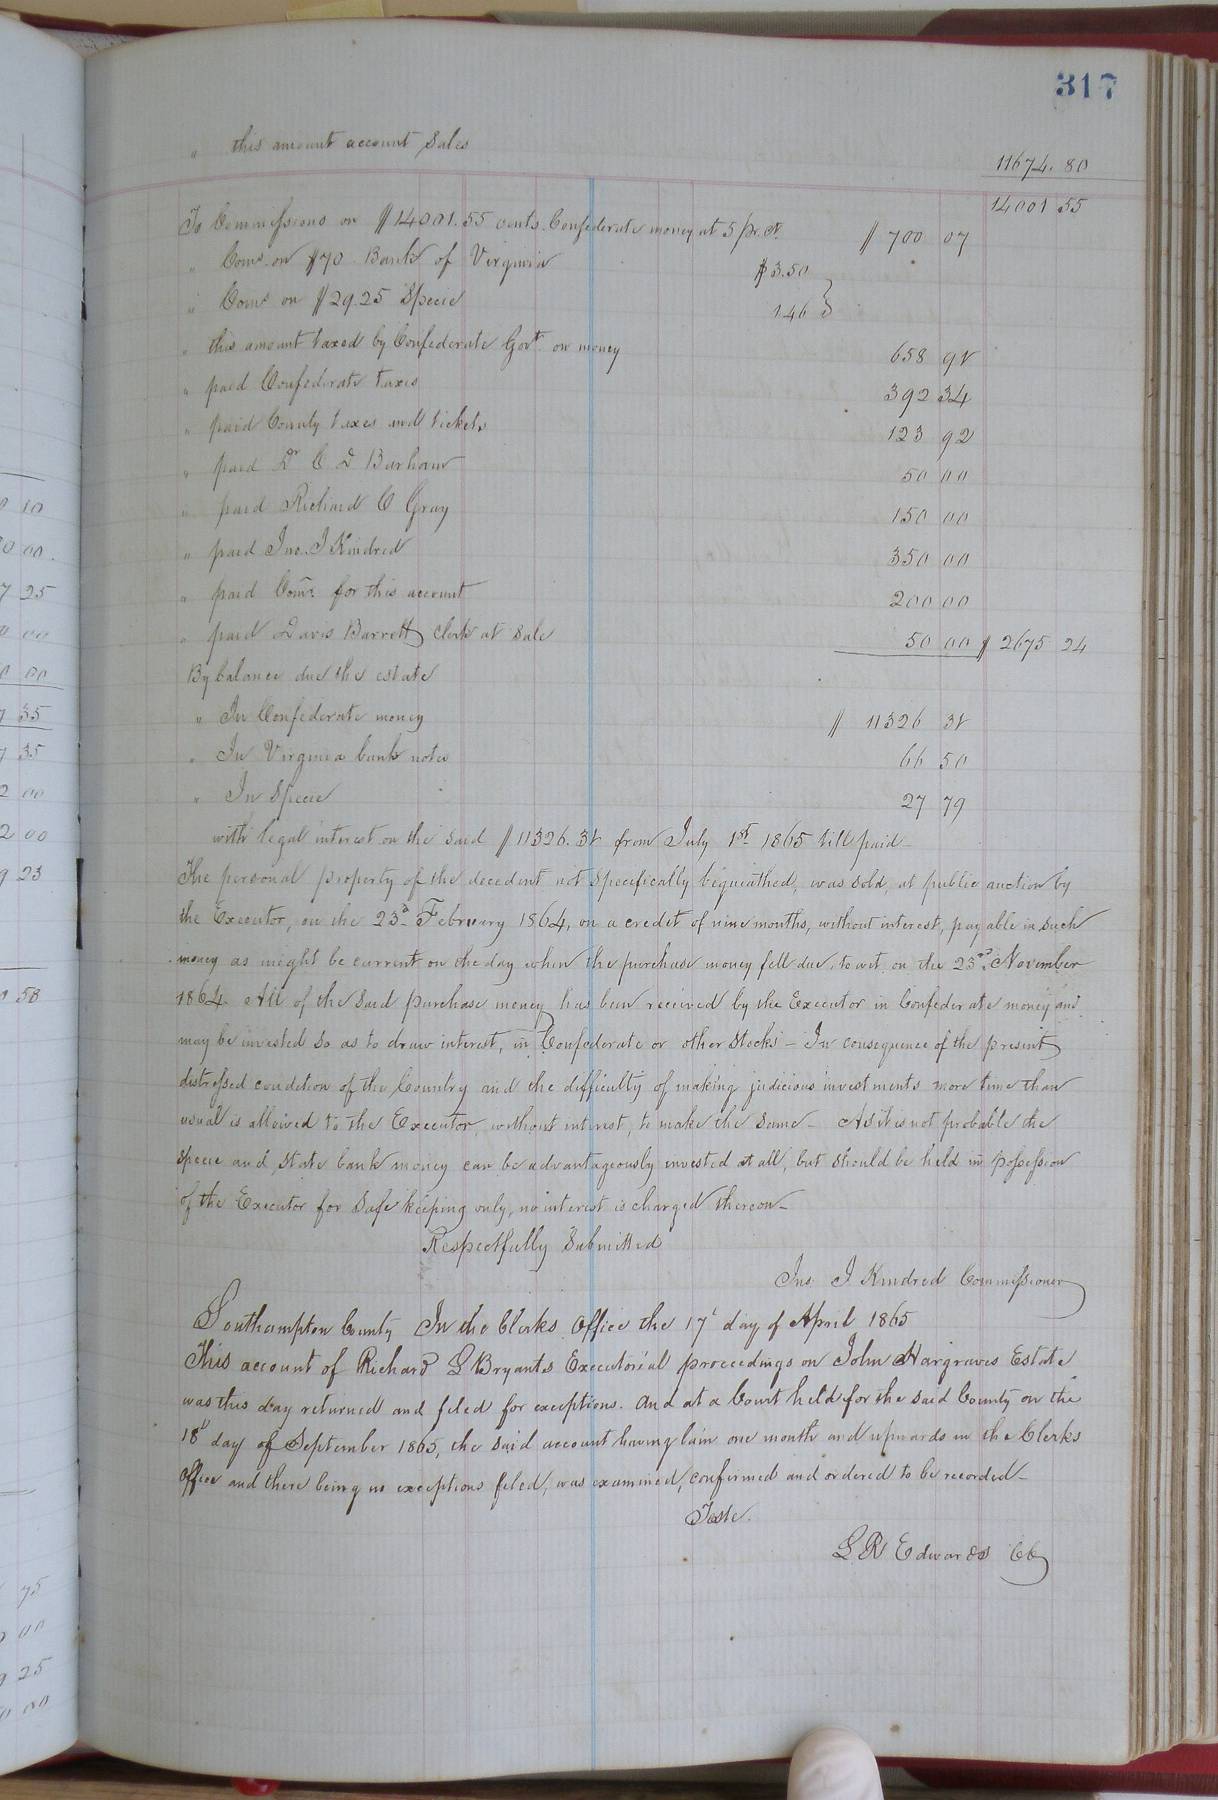 317
" this amount account Sales 11674. 80
14001 55
To Commissions on $14001.55 cents Confederate money at 5 pr. ct. $ 700 07
" Coms. on $70 Bank of Virginia $3.50
" Coms on $29.25 Specie 1.46 }
" this amount taxed by Confederate Govt. on money 658 91
" paid Confederate taxes 392 34
" paid County taxes and tickets 123 92
" paid Dr C D Barham 50 00
" paid Richard C Gray 150 00
" paid Jno. J Kindred 350 00
" paid Comr. for this account 200 00
" paid Davis Barrett clerk at Sale 50 00 $ 2675 24
By balance due the estate
" In Confederate money $ 11326 31
" In Virginia bank notes 66 50
" In Specie 27 79
with legal interest on the said $11326.31 from July 1st 1865 till paid -
The personal property of the decedent not specifically bequeathed, was sold, at public auction by
the Executor, on the 23d February 1864, on a credit of nine months, without interest, payable in such
money as might be current on the day when the purchase money fell due, to wit, on the 23rd November
1864. All of the said purchase money has been received by the Executor in Confederate money and
may be invested so as to draw interest, in Confederate or other Stocks - In consequence of the present
distressed condition of the Country and the difficulty of making judicious investments more time than
usual is allowed to the Executor, without interest, to make the same - As it is not probable the
specie and State bank money can be advantageously invested at all, but should be held in possession
of the Executor for safe keeping only, no interest is charged thereon -
Respectfully Submitted
Jno. J. Kindred Commissioner
Southampton County In the Clerks Office the 17' day of April 1865
This account of Richard L Bryants Executorial proceedings on John Hargraves Estate
was this day returned and filed for exceptions. And at a Court held for the said County on the
18' day of September 1865, the said account having lain one month and upwards in the Clerks
Office and there being no exceptions filed, was examined, confirmed and ordered to be recorded -
Teste.
L R Edwards CC
10
00
7 25
00
00
7 35
7 35
2 00
2 00
9 23
58
75
00
25
00